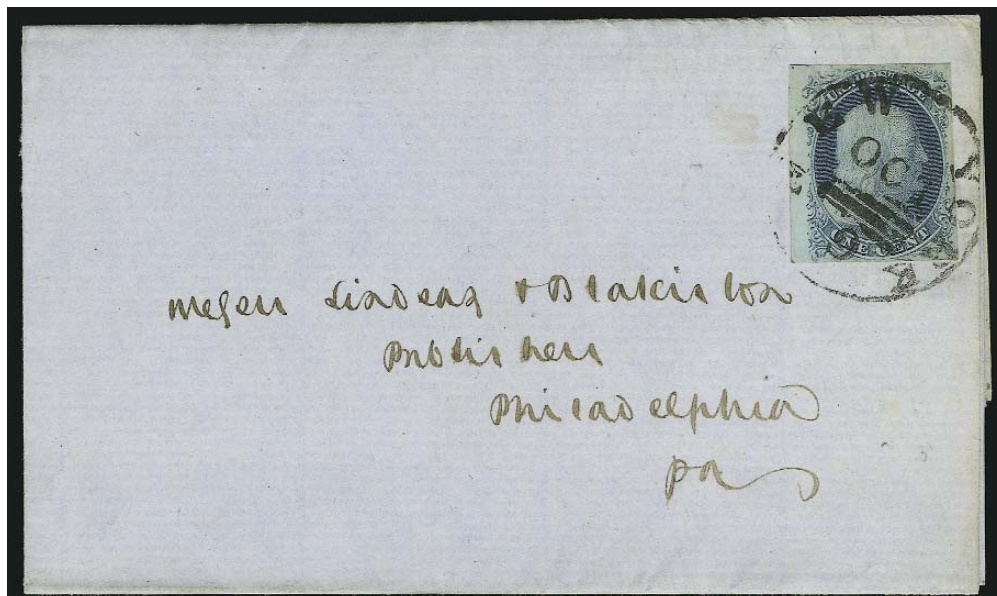 U.S. POSTAGE
NEW YORK
OC
ONE CENT.
Messrs Lindsay & Blakiston
Publishers
Philadelphia
Pa